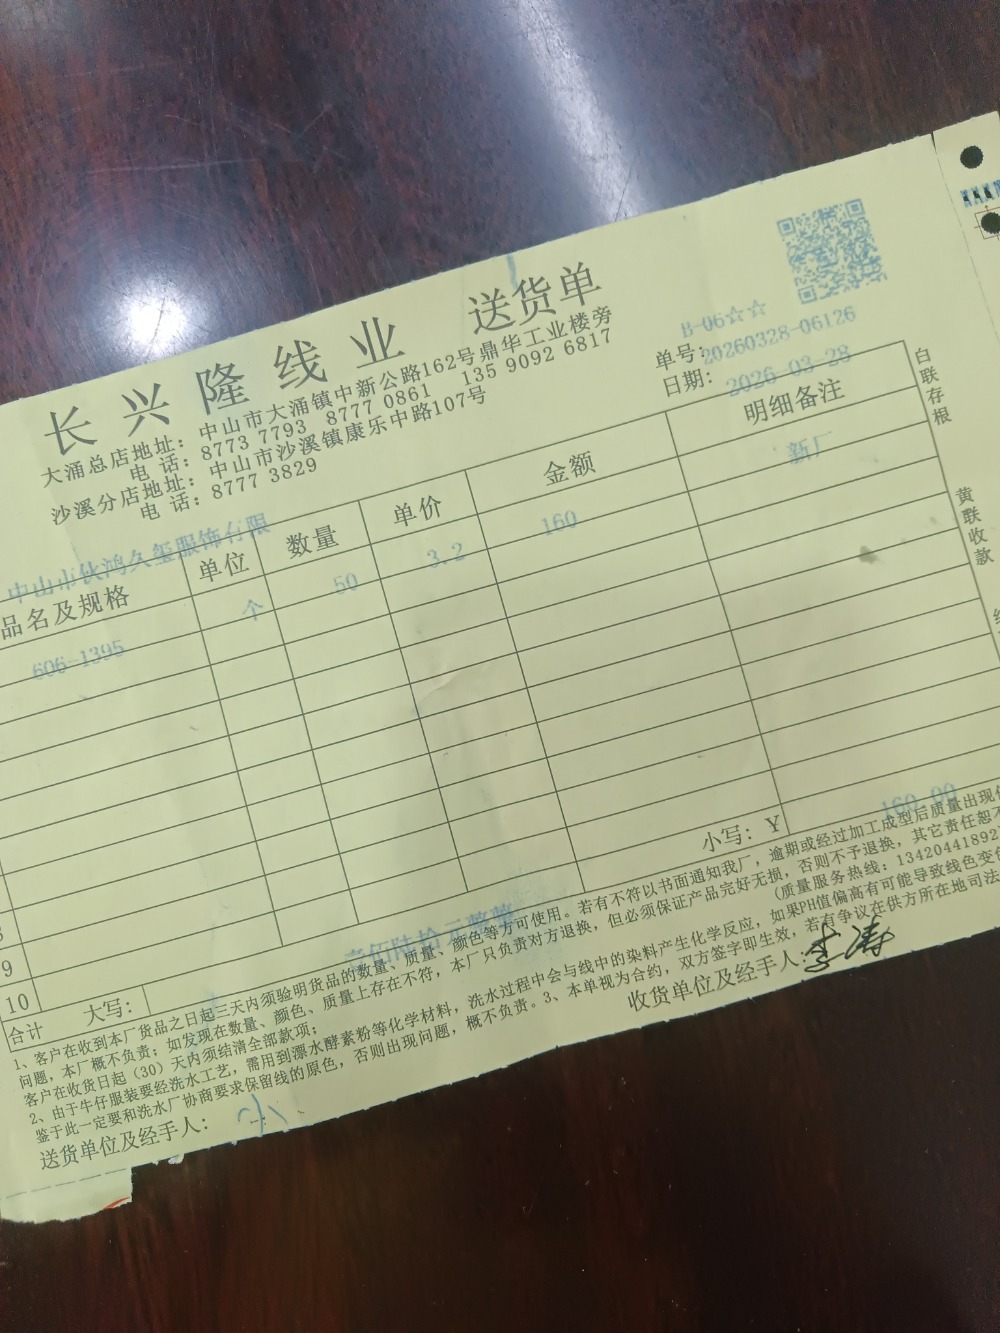 长兴隆线业 送货单
大涌总店地址：中山市大涌镇中新公路162号鼎华工业楼旁
电 话：8773 7793 8777 0861 135 9092 6817
沙溪分店地址：中山市沙溪镇康乐中路107号
电 话：8777 3829
B-06☆☆
单号：20260328-06126
日期：2026-03-28
中山市伙鸿久玺服饰有限
品名及规格 单位 数量 单价 金额 明细备注
606-1395 个 50 3.2 160 新厂
9
10
合计 大写： 壹佰陆拾元整 小写：¥ 160.00
1、客户在收到本厂货品之日起三天内须验明货品的数量、质量、颜色等方可使用。若有不符以书面通知我厂，逾期或经过加工成型后质量出现
问题，本厂概不负责；如发现在数量、颜色、质量上存在不符，本厂只负责对方退换，但必须保证产品完好无损，否则不予退换，其它责任恕不
客户在收货日起（30）天内须结清全部款项；（质量服务热线：13420441892
2、由于牛仔服装要经洗水工艺，需用到漂水酵素粉等化学材料，洗水过程中会与线中的染料产生化学反应，如果PH值偏高有可能导致线色变色
鉴于此一定要和洗水厂协商要求保留线的原色，否则出现问题，概不负责。3、本单视为合约，双方签字即生效，若有争议在供方所在地司法
送货单位及经手人： 收货单位及经手人：李涛
白联存根
黄联收款